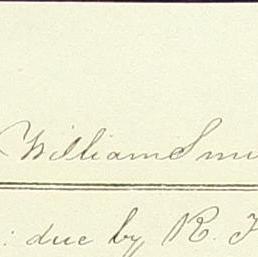 William Smi
: due by R.